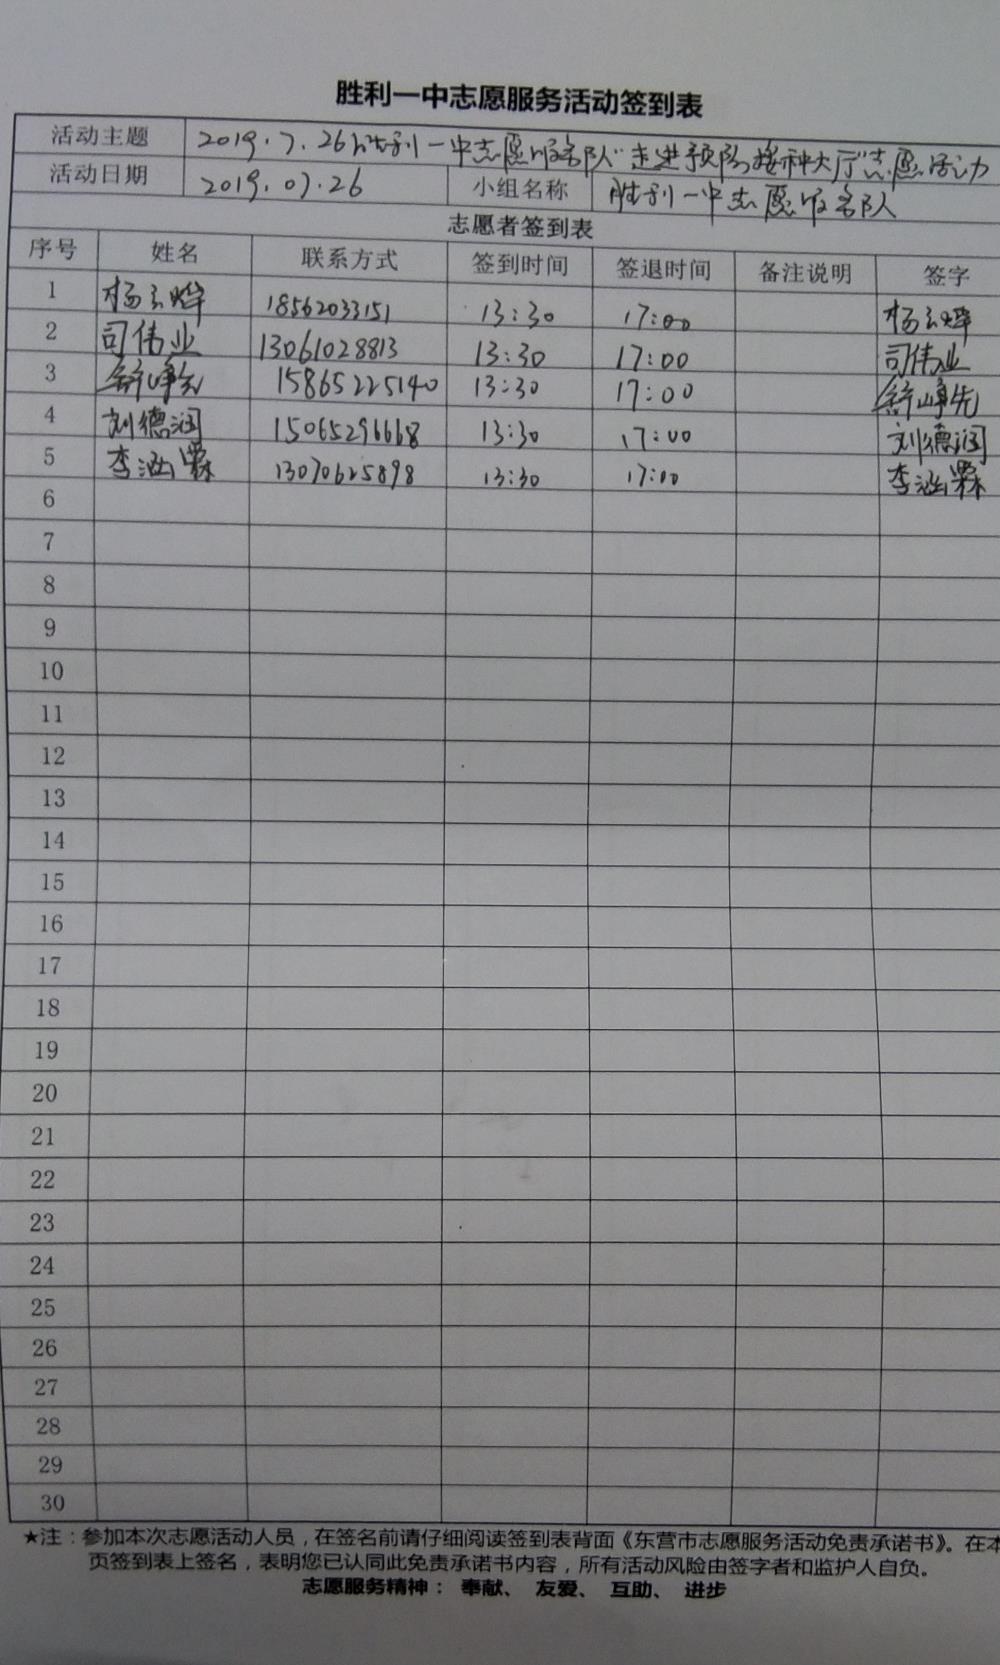 胜利一中志愿服务活动签到表
活动主题 2019.7.26胜利一中志愿服务队"走进预防接种大厅"志愿活动
活动日期 2019.07.26 小组名称 胜利一中志愿服务队
志愿者签到表
序号 姓名 联系方式 签到时间 签退时间 备注说明 签字
1 杨烨 18562033151 13:30 17:00 杨烨
2 司伟业 13061028813 13:30 17:00 司伟业
3 舒峥先 15865225140 13:30 17:00 舒峥先
4 刘德润 15065296668 13:30 17:00 刘德润
5 李涵霖 13070625898 13:30 17:00 李涵霖
6
7
8
9
10
11
12
13
14
15
16
17
18
19
20
21
22
23
24
25
26
27
28
29
30
★注：参加本次志愿活动人员，在签名前请仔细阅读签到表背面《东营市志愿服务活动免责承诺书》。在本
页签到表上签名，表明您已认同此免责承诺书内容，所有活动风险由签字者和监护人自负。
志愿服务精神： 奉献、 友爱、 互助、 进步